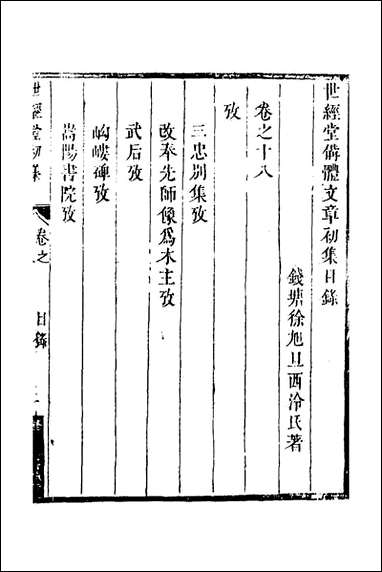 世經堂俻體文章初集目錄
錢塘徐旭旦西泠氏著
卷之十八
攷
三忠別集攷
改奉先師像爲木主攷
武后攷
岣嶁碑攷
嵩陽書院攷
世經堂初集
卷之
目錄